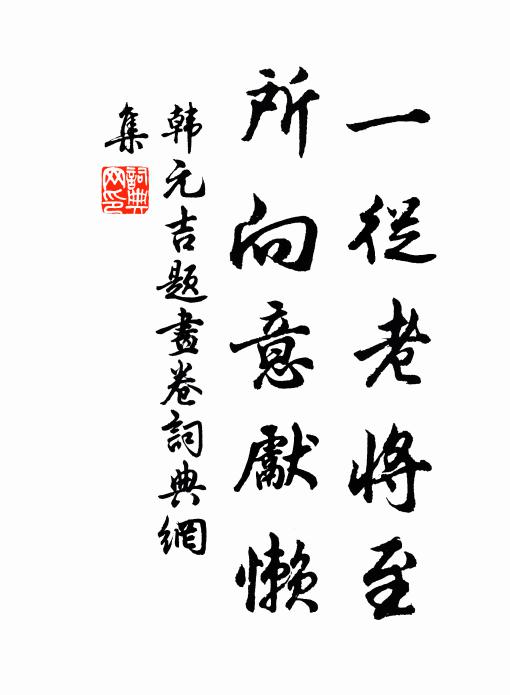 一從老將至
所向意獻懶
韩元吉題畫卷詞典網
集
詞典
网印